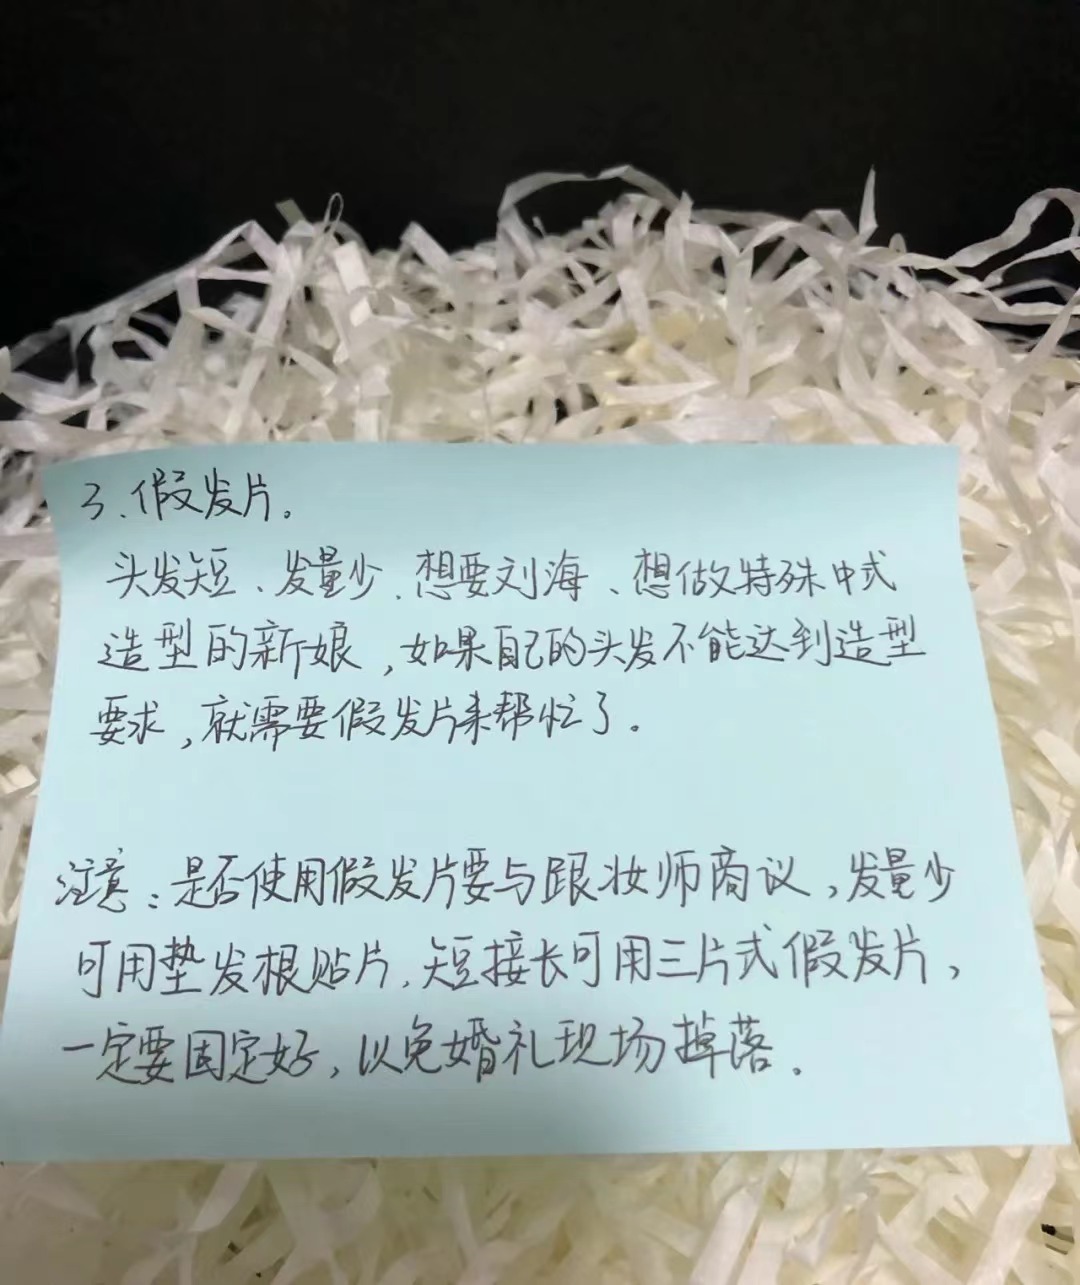 3、假发片。
头发短、发量少、想要刘海、想做特殊中式
造型的新娘，如果自己的头发不能达到造型
要求，就需要假发片来帮忙了。
注意：是否使用假发片要与跟妆师商议，发量少
可用垫发根贴片，短接长可用三片式假发片，
一定要固定好，以免婚礼现场掉落。